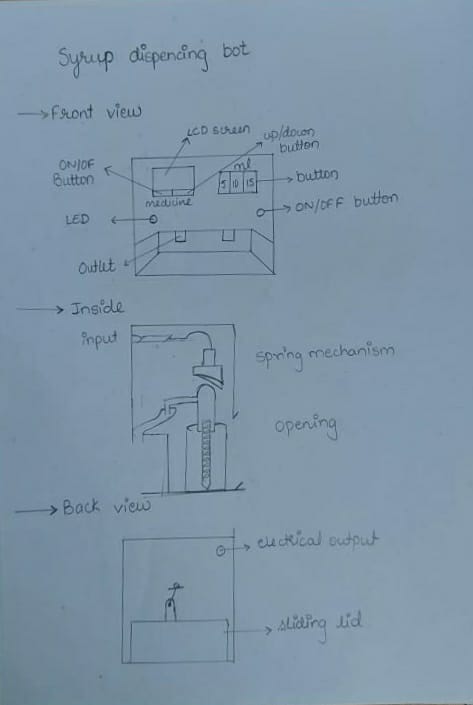 Syrup dispencing bot
Front view
LCD screen
up/down
button
ON/OF
Button
ml
5 10 15
button
medicine
LED
ON/OFF button
Outlet
Inside
input
spring mechanism
opening
Back view
electrical output
sliding lid